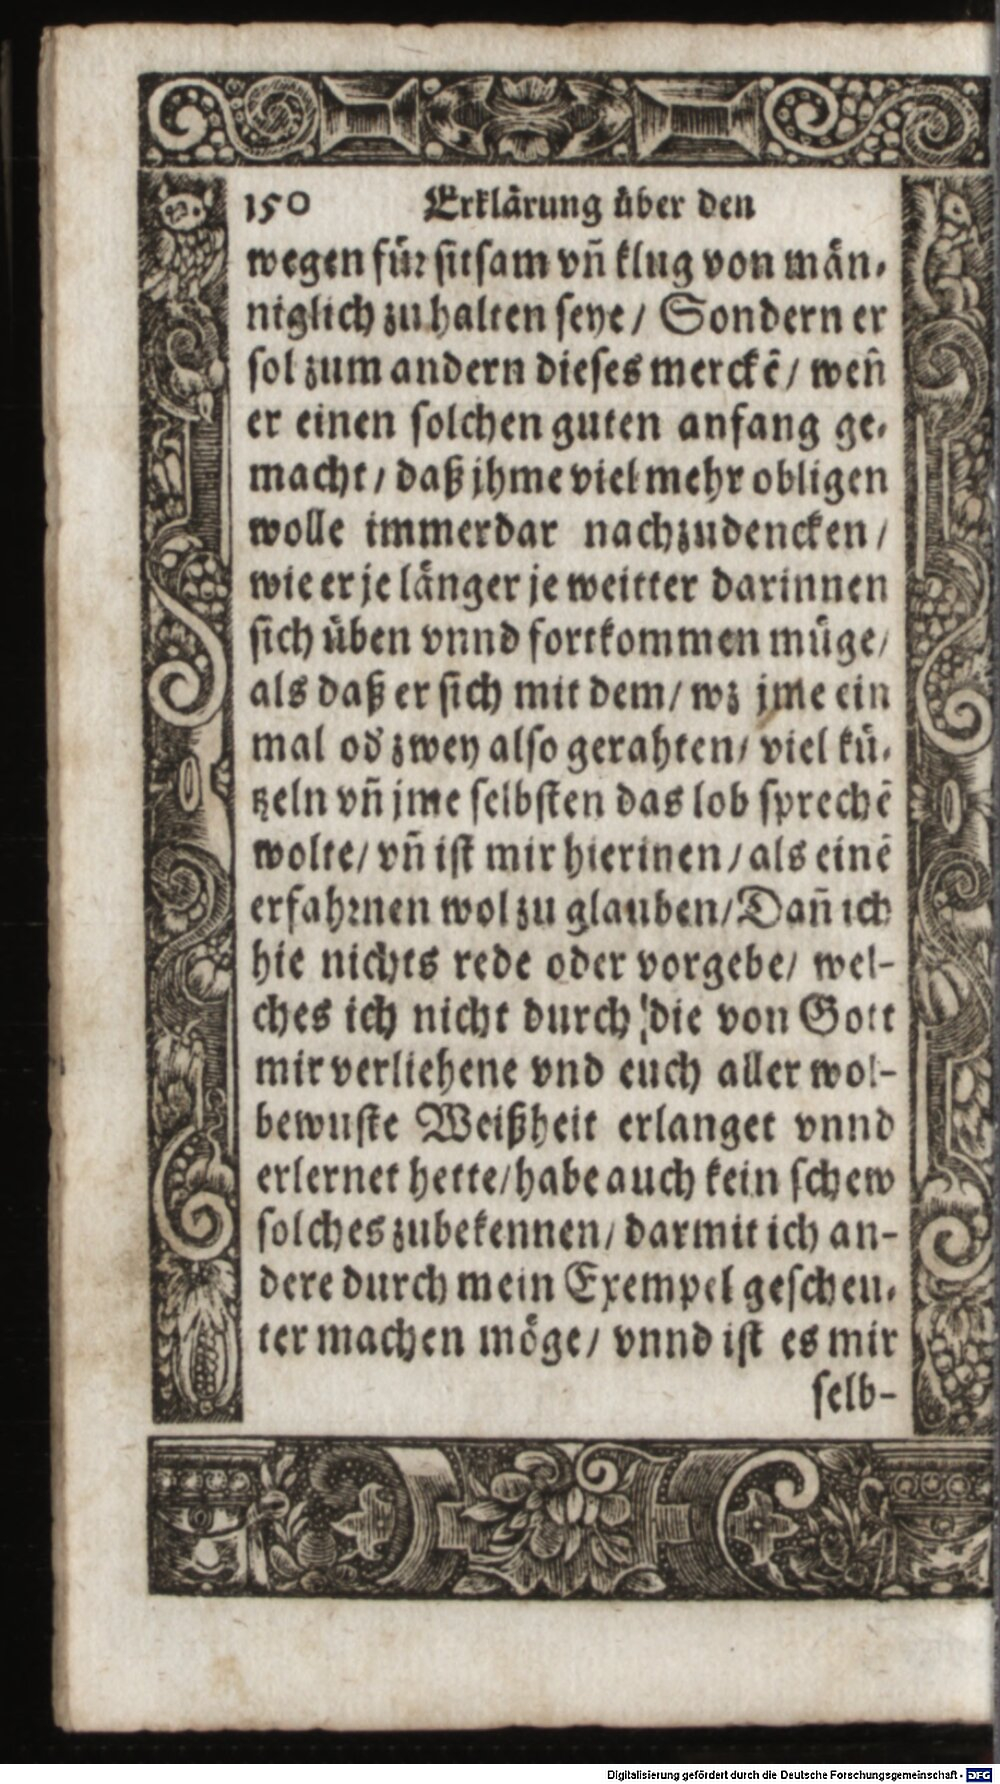 150 Erklårung åber den
wegen fůr sitsam vñ klug von mån⸗
niglich zu halten seye / Sondern er
sol zum andern dieses merckẽ / weñ
er einen solchen guten anfang ge⸗
macht / daß jhme viel mehr obligen
wolle immerdar nachzudencken /
wie er je långer je weitter darinnen
sich ůben vnnd fortkommen můge /
als daß er sich mit dem / wz jme ein
mal od zwey also gerahten / viel ků⸗
tzeln vñ jme selbsten das lob sprechẽ
wolte / vñ ist mir hierinen / als einẽ
erfahrnen wol zu glauben / Dañ ich
hie nichts rede oder vorgebe / wel-
ches ich nicht durch die von Gott
mir verliehene vnd euch aller wol-
bewuste Weißheit erlanget vnnd
erlernet hette / habe auch kein schew
solches zubekennen / darmit ich an-
dere durch mein Exempel gescheu⸗
ter machen möge / vnnd ist es mir
selb-
Digitalisierung gefördert durch die Deutsche Forschungsgemeinschaft - DFG